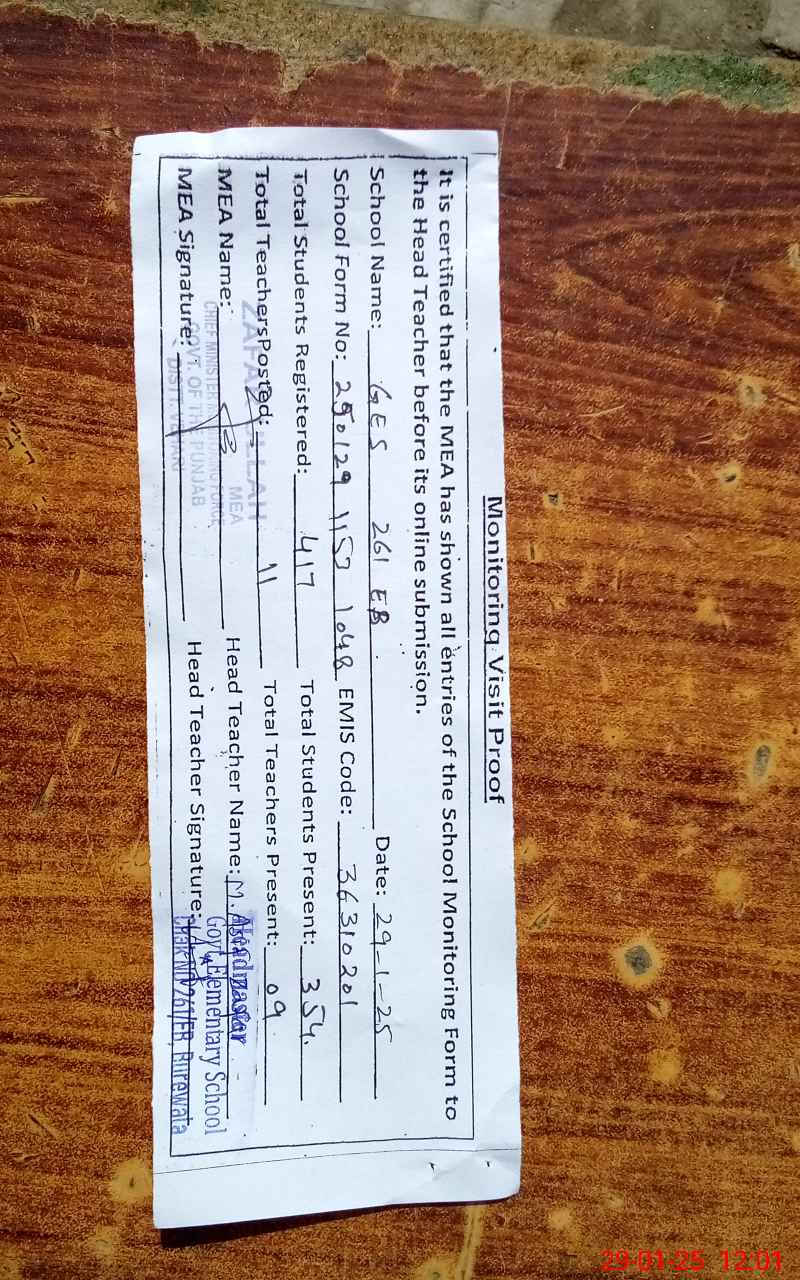 Monitoring Visit Proof
It is certified that the MEA has shown all entries of the School Monitoring Form to
the Head Teacher before its online submission.
School Name: GES 261 EB Date: 29-1-25
School Form No: 250129 1157 1048 EMIS Code: 36310201
Total Students Registered: 417 Total Students Present: 354
Total TeachersPosted: 11 Total Teachers Present: 09
MEA Name: Head Teacher Name: M.
MEA Signature: Head Teacher Signature:
MEA
CHIEF MINISTER
GOVT. OF THE PUNJAB
DISTT. VEHARI
Headmaster
Govt. Elementary School
261/EB, Burewala
29-01-25 12:01